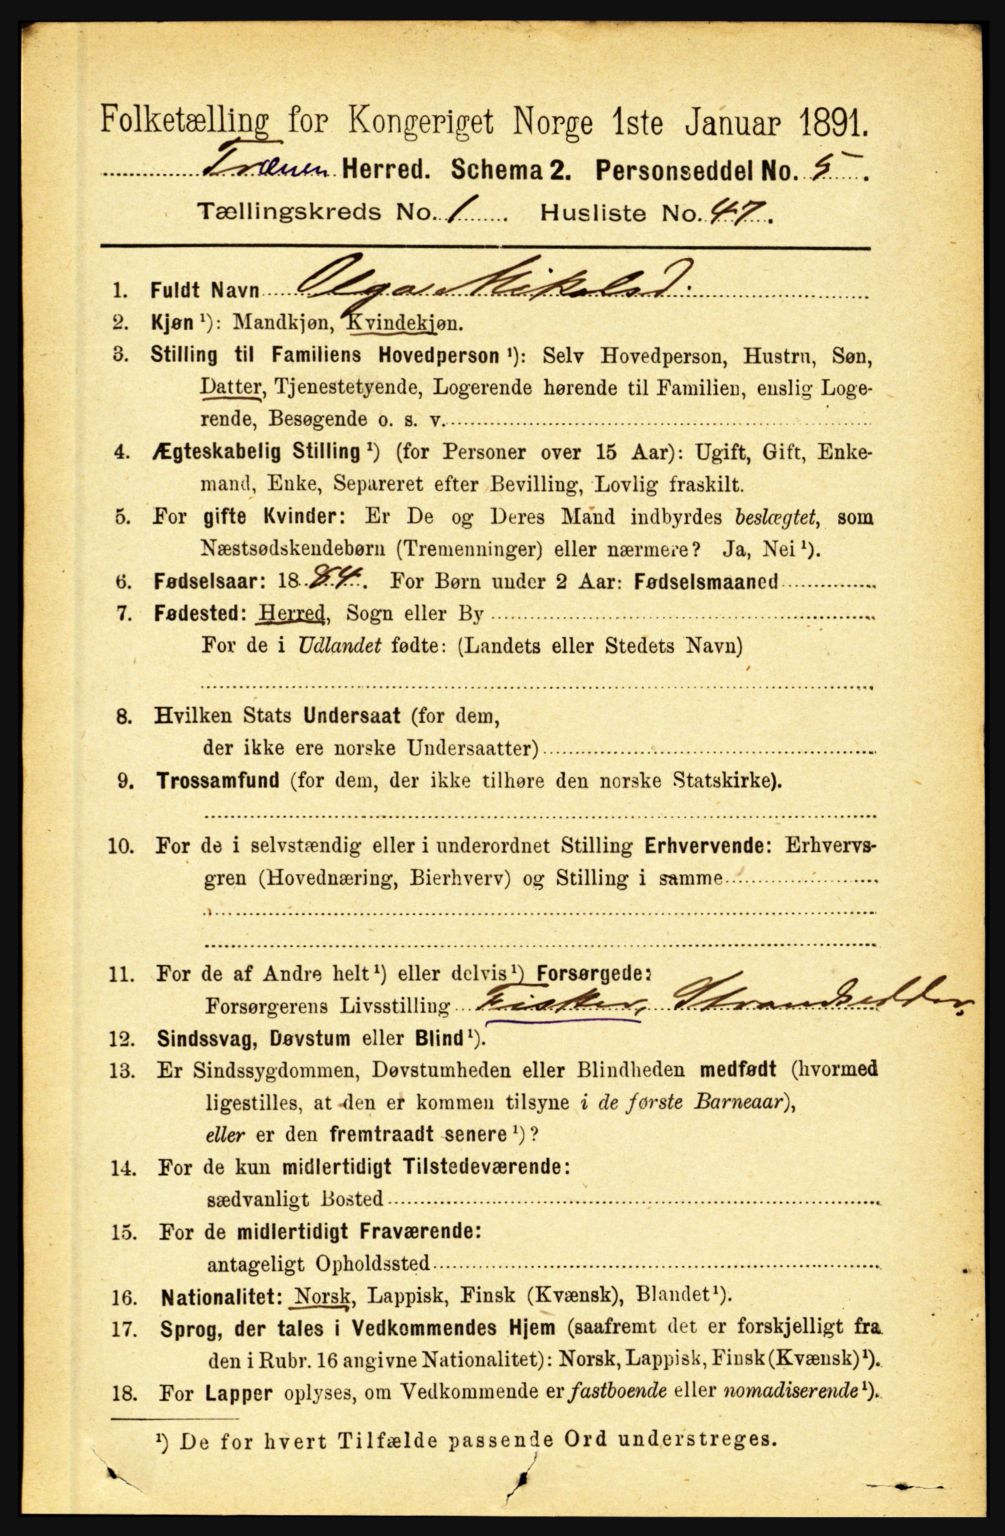 Folketælling for Kongeriget Norge 1ste Januar 1891.
Trænen Herred. Schema 2. Personseddel No. 5.
Tællingskreds No. 1. Husliste No. 47.
1. Fuldt Navn Olga Mikalsd.
2. Kjøn ¹): Mandkjøn, Kvindekjøn.
3. Stilling til Familiens Hovedperson ¹): Selv Hovedperson, Hustru, Søn,
Datter, Tjenestetyende, Logerende hørende til Familien, enslig Loge-
rende, Besøgende o. s. v.
4. Ægteskabelig Stilling ¹) (for Personer over 15 Aar): Ugift, Gift, Enke-
mand, Enke, Separeret efter Bevilling, Lovlig fraskilt.
5. For gifte Kvinder: Er De og Deres Mand indbyrdes beslægtet, som
Næstsødskendebørn (Tremenninger) eller nærmere? Ja, Nei ¹).
6. Fødselsaar: 1884. For Børn under 2 Aar: Fødselsmaaned
7. Fødested: Herred, Sogn eller By
For de i Udlandet fødte: (Landets eller Stedets Navn)
8. Hvilken Stats Undersaat (for dem,
der ikke ere norske Undersaatter)
9. Trossamfund (for dem, der ikke tilhøre den norske Statskirke).
10. For de i selvstændig eller i underordnet Stilling Erhvervende: Erhvervs-
gren (Hovednæring, Bierhverv) og Stilling i samme
11. For de af Andre helt ¹) eller delvis ¹) Forsørgede:
Forsørgerens Livsstilling Fisker, Strandsidder.
12. Sindssvag, Døvstum eller Blind ¹).
13. Er Sindssygdommen, Døvstumheden eller Blindheden medfødt (hvormed
ligestilles, at den er kommen tilsyne i de første Barneaar),
eller er den fremtraadt senere ¹)?
14. For de kun midlertidigt Tilstedeværende:
sædvanligt Bosted
15. For de midlertidigt Fraværende:
antageligt Opholdssted
16. Nationalitet: Norsk, Lappisk, Finsk (Kvænsk), Blandet ¹).
17. Sprog, der tales i Vedkommendes Hjem (saafremt det er forskjelligt fra
den i Rubr. 16 angivne Nationalitet): Norsk, Lappisk, Finsk (Kvænsk) ¹).
18. For Lapper oplyses, om Vedkommende er fastboende eller nomadiserende ¹).
¹) De for hvert Tilfælde passende Ord understreges.